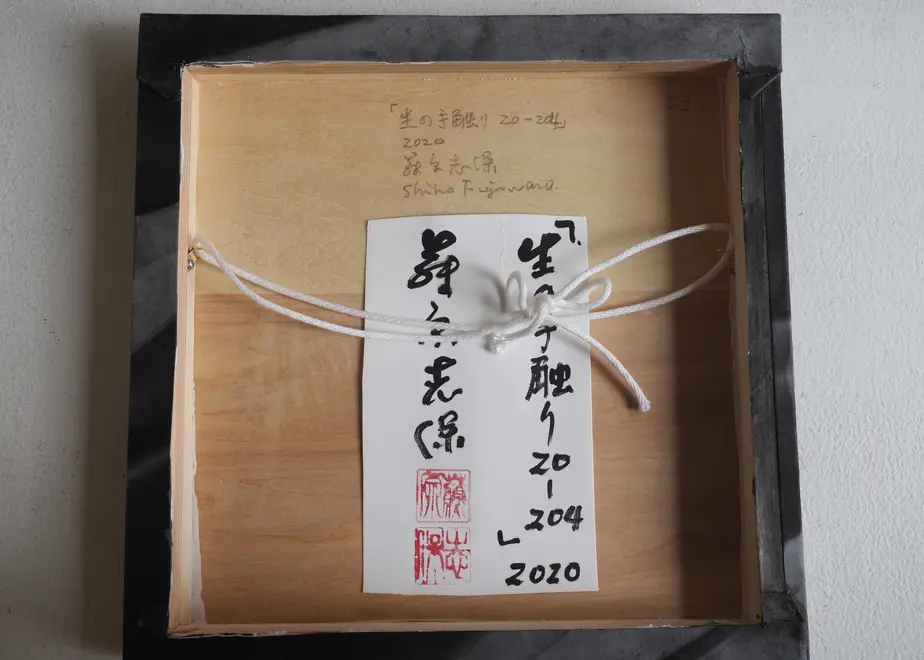 「生の手触り 20-204」
2020
藤原志保
Shiho Fujiwara.
53
「生の手触り20-204」
2020
藤原志保
藤原
志保